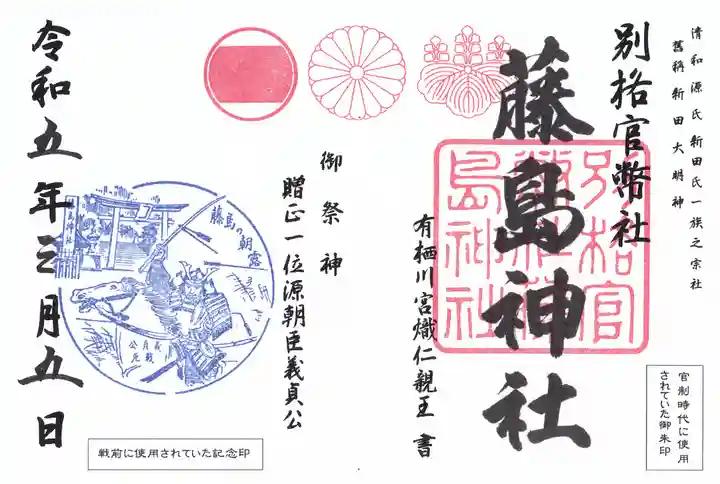 清和源氏新田氏一族之宗社
舊称新田大明神
別格官幣社
藤島神社
別格官幣社藤島神社
有栖川宮熾仁親王 書
官制時代に使用
されていた御朱印
御祭神
贈正一位源朝臣義貞公
藤島の朝霧
藤島神社
戦前に使用されていた記念印
令和五年三月五日